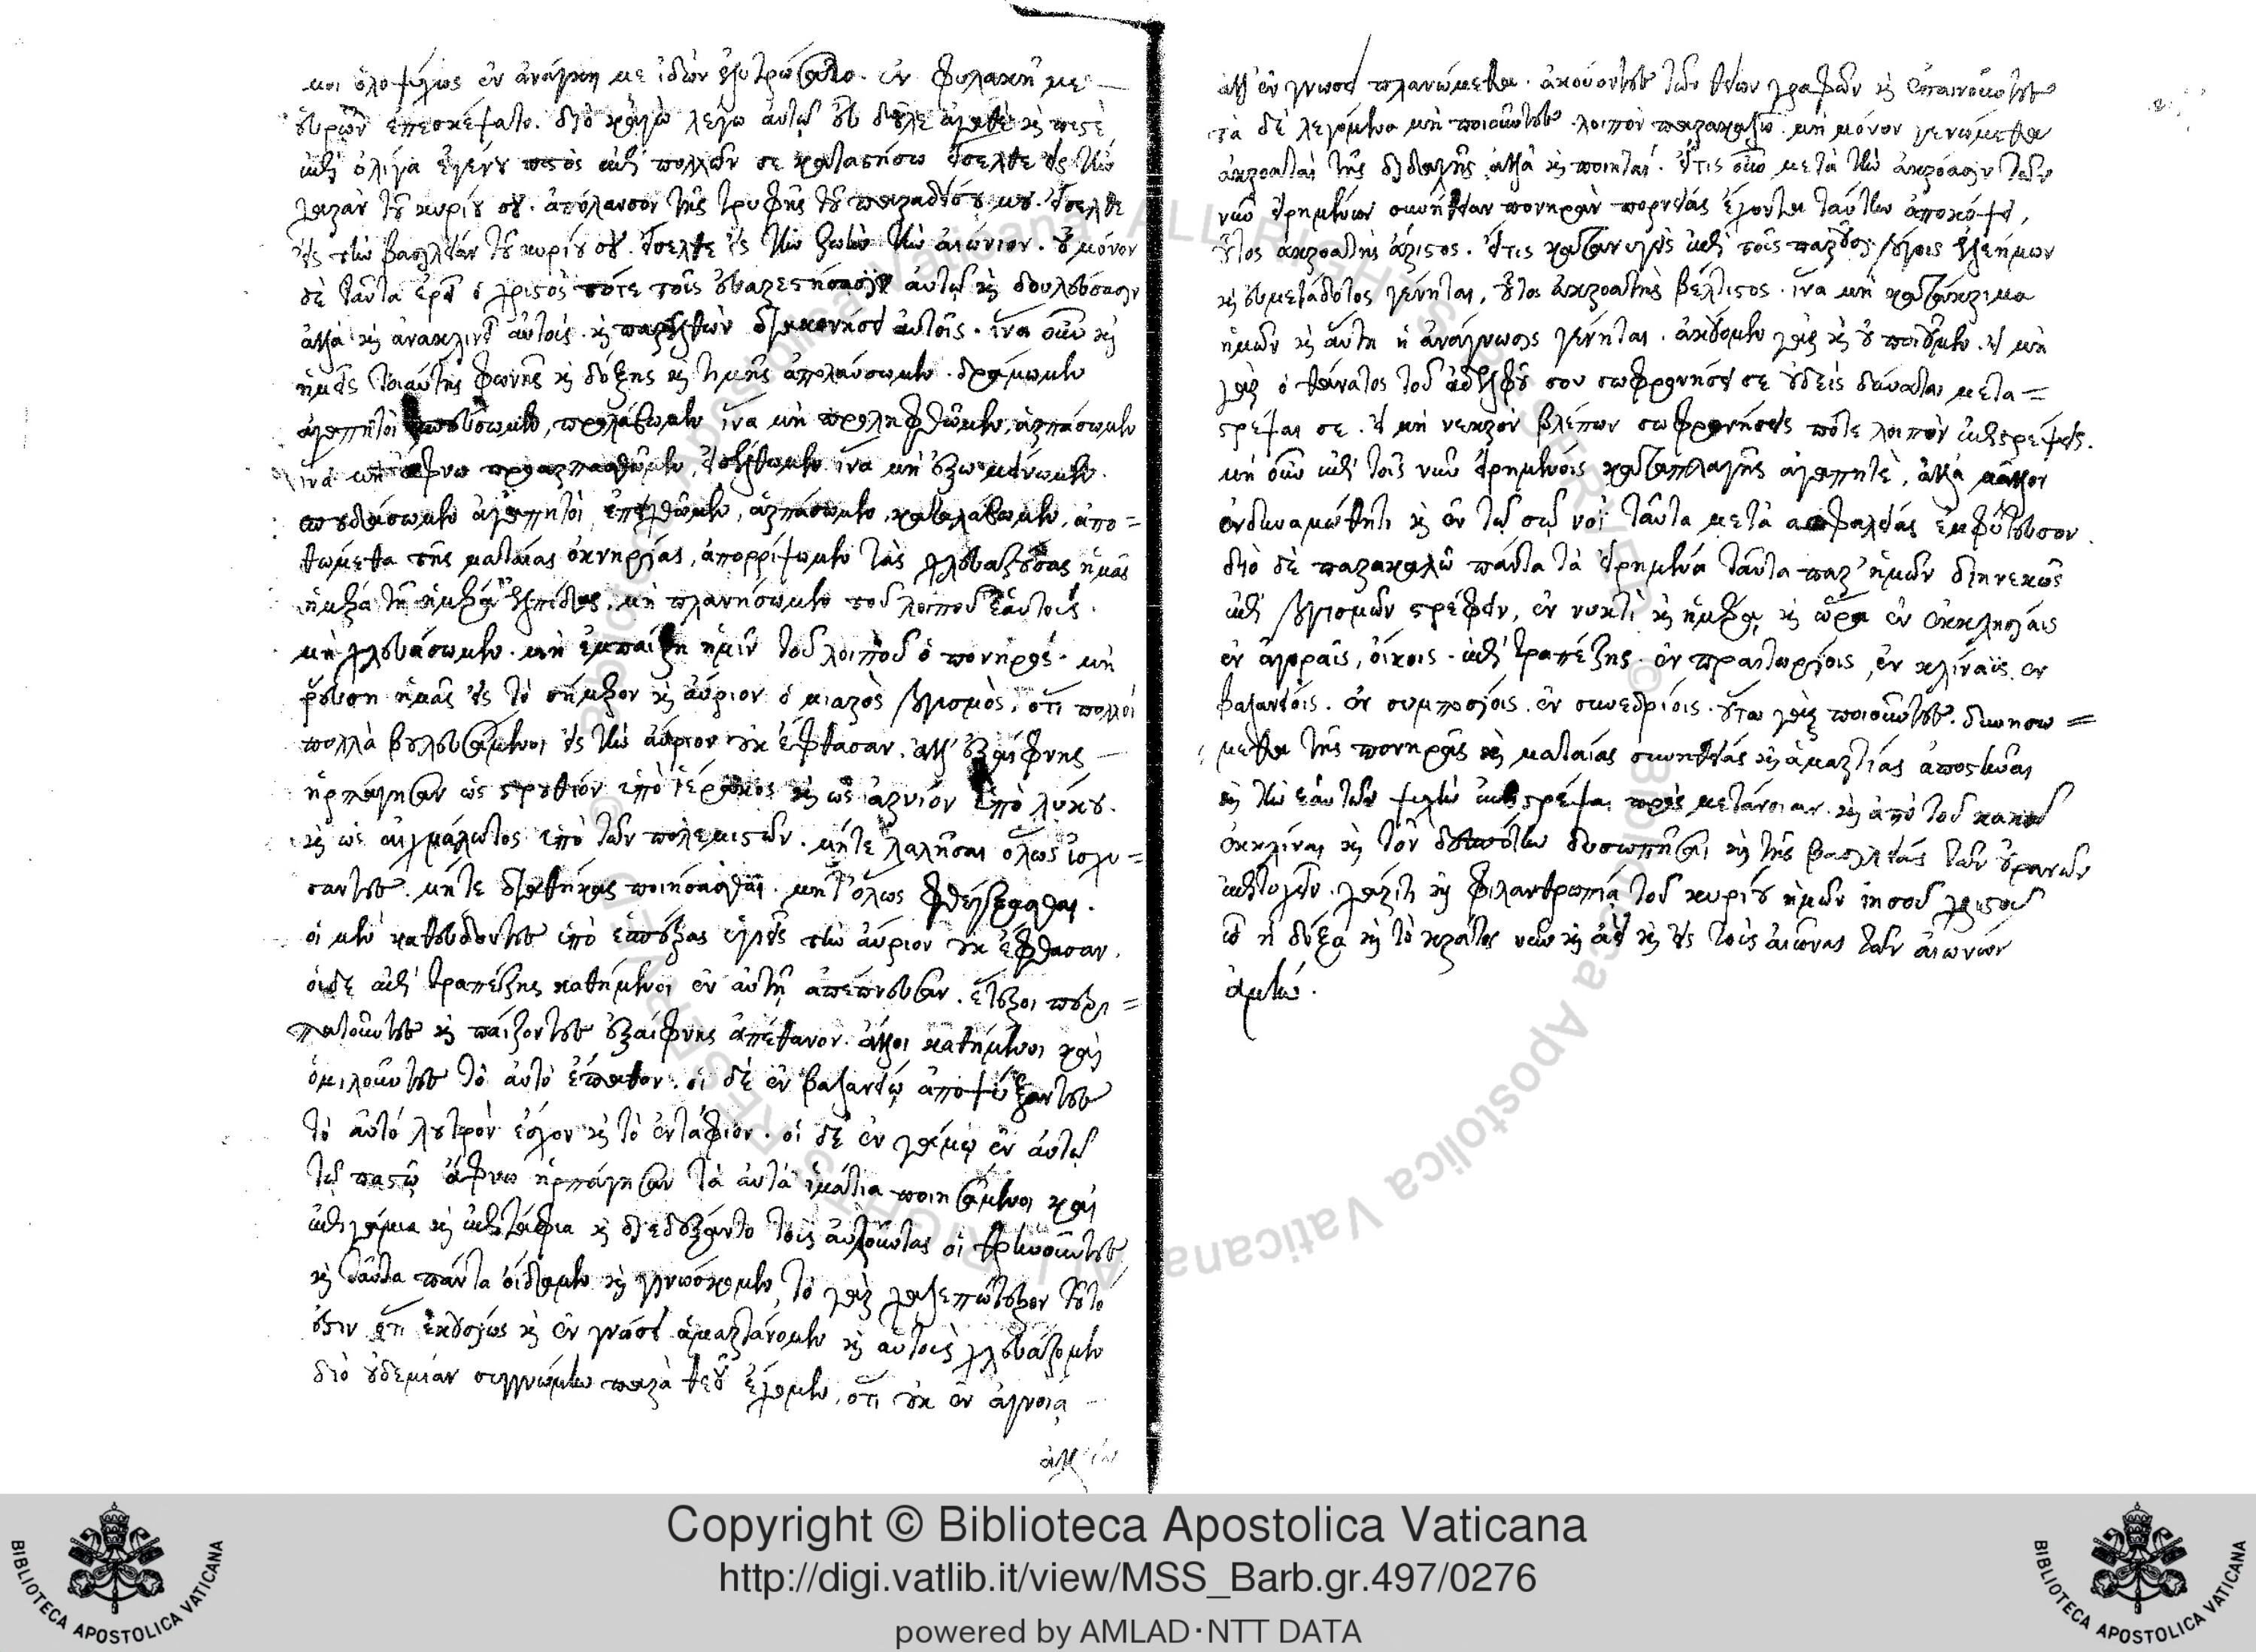 μοι ὁλοψύχως ἐν ἀνάγκῃ με ἰδὼν ἐλυτρώσατο. ἐν φυλακῇ με
εὑρὼν ἐπεσκέψατο. διὸ κἀγὼ λέγω αὐτῷ εὖ δοῦλε ἀγαθὲ καὶ πιστὲ
ἐπὶ ὀλίγα ἐγένου πιστὸς ἐπὶ πολλῶν σε καταστήσω εἴσελθε εἰς τὴν
χαρὰν τοῦ κυρίου σου. ἀπόλαυσον τῆς τρυφῆς τοῦ παραδείσου μου. εἴσελθε
εἰς τὴν βασιλείαν τοῦ κυρίου σου. εἴσελθε εἰς τὴν ζωὴν τὴν αἰώνιον. οὐ μόνον
δὲ ταῦτα ἐρεῖ ὁ χριστὸς τότε τοῖς εὐαρεστήσασιν αὐτῷ καὶ δουλεύσασιν
ἀλλὰ καὶ ἀνακλινεῖ αὐτοὺς καὶ παρελθὼν διακονήσει αὐτοῖς. ἵνα οὖν καὶ
ἡμεῖς τοιαύτης φωνῆς καὶ δόξης καὶ τιμῆς ἀπολαύσωμεν. δράμωμεν
ἀγαπητοὶ σπεύσωμεν, προλάβωμεν ἵνα μὴ προληφθῶμεν, ἁρπάσωμεν
ἵνα μὴ ἄφνω προαρπασθῶμεν, εἰσέλθωμεν ἵνα μὴ ἔξω μείνωμεν.
σπουδάσωμεν ἀγαπητοὶ ἐπέλθωμεν, ἁρπάσωμεν, καταλάβωμεν, ἀπο=
θώμεθα τῆς ματαίας ὀκνηρίας, ἀπορρίψωμεν τὰς χλευαζούσας ἡμᾶς
ἡμέρᾳ τῇ ἡμέρᾳ ἐλπίδας. μὴ πλανήσωμεν τοῦ λοιποῦ ἑαυτούς.
μὴ χλευάσωμεν. μὴ ἐμπαίξῃ ἡμῖν τοῦ λοιποῦ ὁ πονηρὸς. μὴ
ῥεύσῃ ἡμᾶς εἰς τὸ σήμερον καὶ αὔριον ὁ μιαρὸς λογισμὸς. ὅτι πολλοὶ
πολλὰ βουλευσάμενοι εἰς τὴν αὔριον οὐκ ἔφθασαν. ἀλλ' ἐξαίφνης
ἡρπάγησαν ὡς στρουθίον ὑπὸ ἱέρακος καὶ ὡς ἀρνίον ὑπὸ λύκου.
καὶ ὡς αἰχμάλωτος ὑπὸ τῶν πολεμιστῶν. μήτε λαλῆσαι ὅλως ἰσχύ=
σαντες. μήτε διαθήκας ποιήσασθαι. μήθ' ὅλως φθέγξασθαι.
οἱ μὲν καθεύδοντες ὑπὸ ἑσπέρας ὑγιεῖς τὴν αὔριον οὐκ ἔφθασαν.
οἱ δὲ ἐπὶ τραπέζης καθήμενοι ἐν αὐτῇ ἀπέπνευσαν. ἕτεροι περι=
πατοῦντες καὶ παίζοντες ἐξαίφνης ἀπέθανον. ἄλλοι καθήμενοι καὶ
ὁμιλοῦντες τὸ αὐτὸ ἔπαθον. οἱ δὲ ἐν βαλανείῳ ἀποψύξαντες
τὸ αὐτὸ λουτρὸν ἔσχον καὶ τὸ ἐντάφιον. οἱ δὲ ἐν γάμῳ ἐν αὐτῷ
τῷ παστῷ ἄφνω ἡρπάγησαν τὰ αὐτὰ ἱμάτια ποιησάμενοι καὶ
ἐπιγάμια καὶ ἐπιτάφια καὶ διεδέξαντο τοὺς αὐλοῦντας οἱ θρηνοῦντες
καὶ ταῦτα πάντα οἴδαμεν καὶ γινώσκομεν, τὸ γὰρ χαλεπώτερον τοῦτό
ἐστιν ὅτι ἑκουσίως καὶ ἐν γνώσει ἁμαρτάνομεν καὶ αὐτοὺς χλευάζομεν
διὸ οὐδεμίαν συγγνώμην παρὰ θεοῦ ἔχομεν, ὅτι οὐκ ἐν ἀγνοίᾳ
ἀλλ' ἐν
ἀλλ' ἐν γνώσει πλανώμεθα. ἀκούοντες τῶν θείων γραφῶν καὶ ἐπαινοῦντες
τὰ δὲ λεγόμενα μὴ ποιοῦντες. λοιπὸν παρακαλῶ μὴ μόνον γενώμεθα
ἀκροαταὶ τῆς διδαχῆς ἀλλὰ καὶ ποιηταί. εἴ τις οὖν μετὰ τὴν ἀκρόασιν τῶν
νῦν εἰρημένων συνήθειαν πονηρὰν πορνείας ἔχοντα ταύτην ἀποκόψει,
οὗτος ἀκροατὴς ἄριστος. εἴ τις κατανυγεὶς ἐπὶ τοῖς παροῦσι λόγοις ἐλεήμων
καὶ εὐμετάδοτος γένηται, οὗτος ἀκροατὴς βέλτιστος. ἵνα μὴ κατάκριμα
ἡμῶν καὶ αὕτη ἡ ἀνάγνωσις γένηται. ἀκούομεν γὰρ καὶ οὐ ποιοῦμεν. εἰ μὴ
γὰρ ὁ θάνατος τοῦ ἀδελφοῦ σου σωφρονήσει σε οὐδεὶς δύναται μετα=
στρέψαι σε. εἰ μὴ νεκρὸν βλέπων σωφρονήσεις πότε λοιπὸν ἐπιστρέψεις.
μὴ οὖν ἐπὶ τοῖς νῦν εἰρημένοις καταπλαγῇς ἀγαπητὲ, ἀλλὰ μᾶλλον
ἐνδυναμώθητι καὶ ἐν τῷ σῷ νοῒ ταῦτα μετὰ ἀσφαλείας ἐμφύτευσον.
διὸ δὲ παρακαλῶ πάντα τὰ εἰρημένα ταῦτα παρ' ἡμῶν διηνεκῶς
ἐπὶ λογισμῶν στρέφειν, ἐν νυκτὶ καὶ ἡμέρᾳ καὶ ὥρᾳ ἐν ἐκκλησίαις
ἐν ἀγοραῖς, οἴκοις. ἐπὶ τραπέζης. ἐν πραιτωρίοις, ἐν κλίναις ἐν
βαλανείοις. ἐν συμποσίοις. ἐν συνεδρίοις. οὕτω γὰρ ποιοῦντες. δυνησώ=
μεθα τῆς πονηρᾶς καὶ ματαίας συνηθείας καὶ ἁμαρτίας ἀποστῆναι
καὶ τὴν ἑαυτῶν ψυχὴν ἐπιστρέψαι πρὸς μετάνοιαν. καὶ ἀπὸ τοῦ κακοῦ
ἐκκλῖναι καὶ τὸν δεσπότην δυσωπῆσαι καὶ τῆς βασιλείας τῶν οὐρανῶν
ἐπιτυχεῖν. χάριτι καὶ φιλανθρωπίᾳ τοῦ κυρίου ἡμῶν ἰησοῦ χριστοῦ
ᾧ ἡ δόξα καὶ τὸ κράτος νῦν καὶ ἀεὶ καὶ εἰς τοὺς αἰῶνας τῶν αἰώνων
ἀμήν.
Copyright © Biblioteca Apostolica Vaticana
http://digi.vatlib.it/view/MSS_Barb.gr.497/0276
powered by AMLAD·NTT DATA
BIBLIOTECA APOSTOLICA VATICANA
BIBLIOTECA APOSTOLICA VATICANA